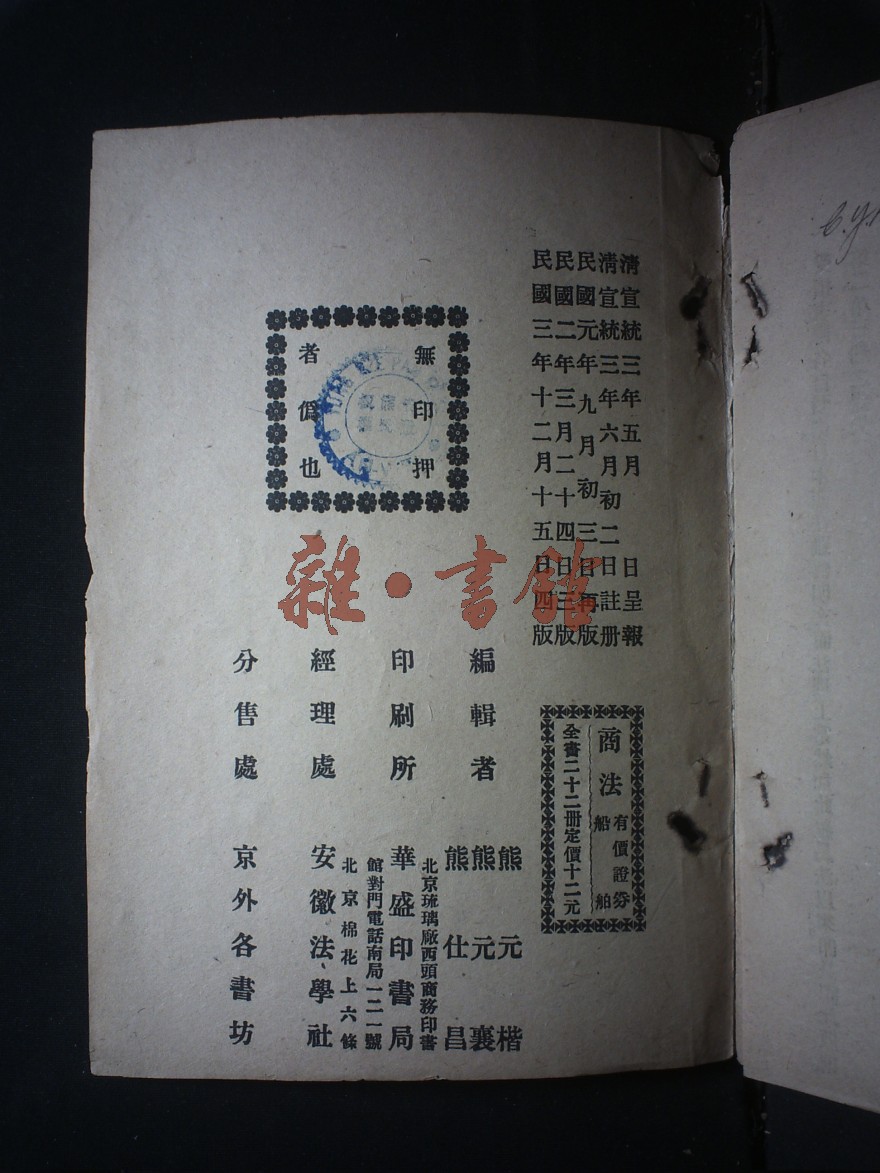 清宣統三年五月　日呈報
清宣統三年六月初二日註册
民國元年九月初三日再版
民國二年三月二十四日三版
民國三年十二月十五日四版
商法
有價證券
船舶
全書二十二册定價十二元
無印押
者僞也
編輯者
熊元楷
熊元襄
熊仕昌
印刷所
北京琉璃廠西頭商務印書
華盛印書局
館對門電話南局一二一號
經理處
北京棉花上六條
安徽法學社
分售處
京外各書坊
雜·書館